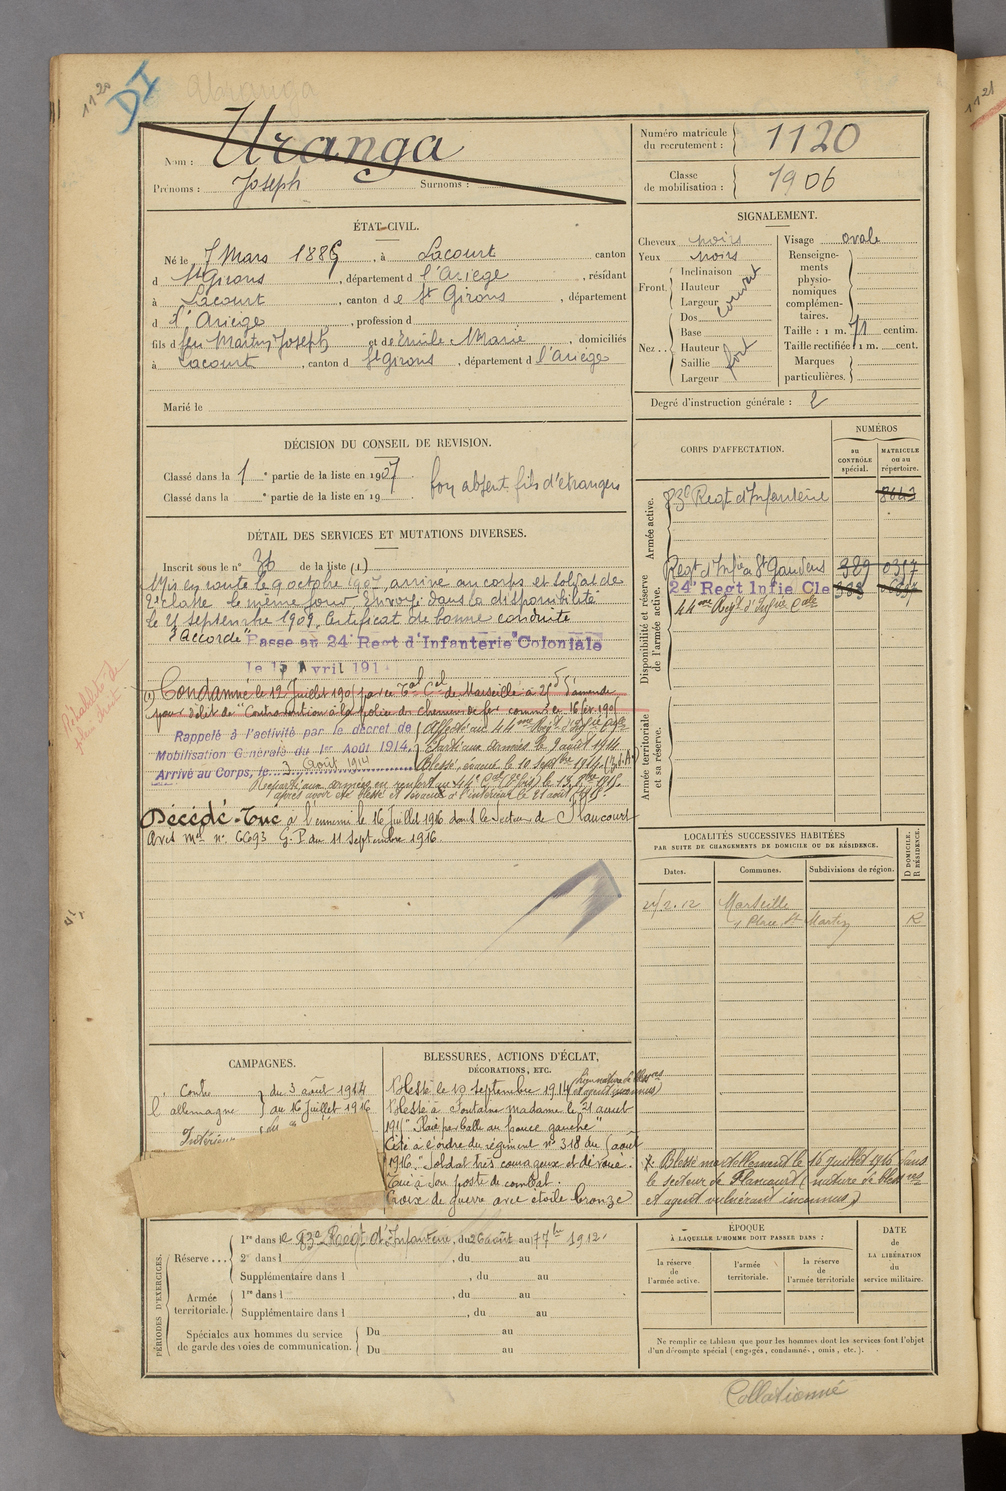 1120
DI
Uranga
Nom : Uranga
Prénoms : Joseph Surnoms :
Numéro matricule du recrutement : 1120
Classe de mobilisation : 1906
ÉTAT-CIVIL.
Né le 7 Mars 1886, à Lacourt canton
d St Girons, département d l'Ariège, résidant
à Lacourt, canton d e St Girons, département
d l'Ariège, profession d
fils d feu Martin Joseph et de Emile Marie, domiciliés
à Lacourt, canton d St Girons, département d l'Ariège
Marié le
SIGNALEMENT.
Cheveux noirs
Yeux noirs
Front. Inclinaison
Hauteur
Largeur
couvert
Nez .. Dos
Base
Hauteur
Saillie
Largeur
fort
Visage ovale
Renseignements physionomiques complémentaires.
Taille : 1 m. 71 centim.
Taille rectifiée 1 m. cent.
Marques particulières.
Degré d'instruction générale : 2
DÉCISION DU CONSEIL DE REVISION.
Classé dans la 1 e partie de la liste en 1907 bon absent fils d'étrangers
Classé dans la e partie de la liste en 19
DÉTAIL DES SERVICES ET MUTATIONS DIVERSES.
Inscrit sous le n° 36 de la liste (1)
Mis en route le 9 octobre 1907, arrivé au corps et soldat de
2e classe le même jour. Envoyé dans la disponibilité
le 21 septembre 1909. Certificat de bonne conduite
"Accordé" Passe au 24e Regt d'Infanterie Coloniale
le 15 Avril 191
(1) Condamné le 12 Juillet 190 par le Tal Cel de Marseille à 25 d'amende
pour délit de "Contravention à la police des chemins de fer commis le 16 fév. 190
Réhabilité de plein droit
Rappelé à l'activité par le décret de
Mobilisation Générale du 1er Août 1914.
Arrivé au Corps, le 3 Août 1914
Affecté au 44me Regt d'Infie Cole
Parti aux armées le 9 août 1914
Blessé, évacué le 10 Septbre 1914
Reparti aux armées en renfort au 44e Cal
après avoir été blessé et évacué à l'intérieur le 21 août 1915.
Décédé - Tué à l'ennemi le 16 Juillet 1916 dans le Secteur de Flaucourt
Avis Mel n° 6693 G. P du 11 Septembre 1916.
CORPS D'AFFECTATION.
NUMÉROS
au CONTRÔLE spécial.
MATRICULE ou au répertoire.
Armée active.
83e Regt d'Infanterie 8643
Disponibilité et réserve de l'armée active.
Regt d'Infie St Gaudens 389 0317
24e Regt Infie Cle
44me Regt d'Infie Cole
Armée territoriale et sa réserve.
LOCALITÉS SUCCESSIVES HABITÉES
PAR SUITE DE CHANGEMENTS DE DOMICILE OU DE RÉSIDENCE.
Dates. Communes. Subdivisions de région. D DOMICILE. R RÉSIDENCE.
Marseille
1 Place St Martin R
CAMPAGNES.
Contre l'allemagne du 3 août 1914
au 16 Juillet 1916
Intérieur
BLESSURES, ACTIONS D'ÉCLAT,
DÉCORATIONS, ETC.
Blessé le 10 septembre 1914
Blessé à Fontaine madame le 21 aout
1915 "Plaie par balle au pouce gauche"
Cité à l'ordre du régiment n° 318 du août
1916. "Soldat très courageux et dévoué.
Tué à son poste de combat.
Croix de guerre avec étoile bronze
* Blessé mortellement le 16 juillet 1916 dans
le secteur de Flaucourt (nature de blessures
et agent vulnérant inconnus)
PÉRIODES D'EXERCICES.
Réserve... 1re dans le 83e Regt d'Infanterie, du 26 août au 17 7bre 1912.
2e dans l , du au
Supplémentaire dans l , du au
Armée territoriale. 1re dans l , du au
Supplémentaire dans l , du au
Spéciales aux hommes du service de garde des voies de communication. Du au
Du au
ÉPOQUE
À LAQUELLE L'HOMME DOIT PASSER DANS :
la réserve de l'armée active.
l'armée territoriale.
la réserve de l'armée territoriale
DATE DE LA LIBÉRATION du service militaire.
Ne remplir ce tableau que pour les hommes dont les services font l'objet
d'un décompte spécial (engagés, condamnés, omis, etc.).
Collationné
1121